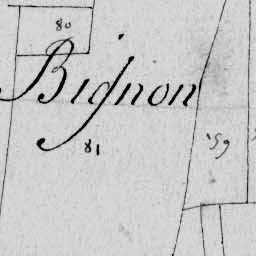 80
Bignon
81
159